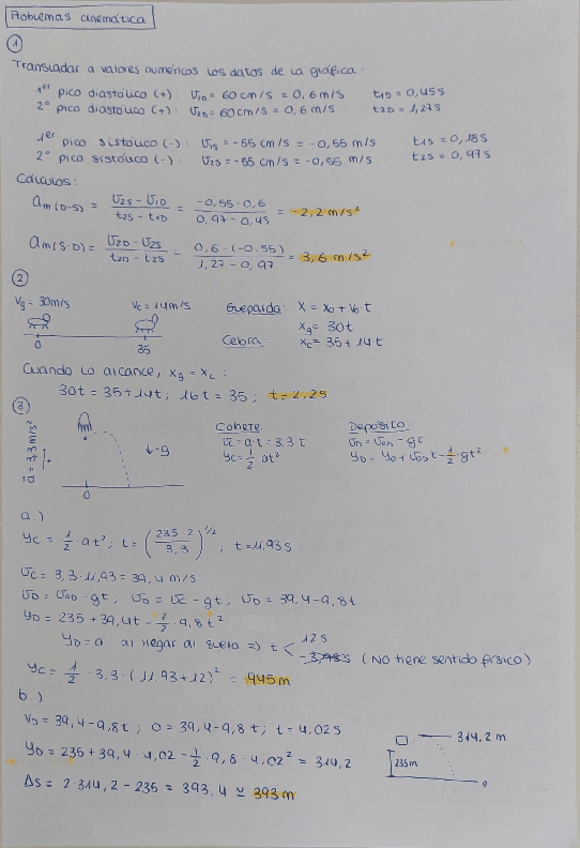 Problemas cinemática
1
Transladar a valores numéricos los datos de la gráfica:
1er pico diastólico (+): v1D = 60 cm/s = 0,6 m/s t1D = 0,45s
2º pico diastólico (+): v2D = 60 cm/s = 0,6 m/s t2D = 1,27s
1er pico sistólico (-): v1S = -55 cm/s = -0,55 m/s t1S = 0,18s
2º pico sistólico (-): v2S = -55 cm/s = -0,55 m/s t2S = 0,97s
Cálculos:
am(D-S) = (v2S - v1D)/(t2S - t1D) = (-0,55-0,6)/(0,97-0,45) = -2,2 m/s²
am(S-D) = (v2D - v2S)/(t2D - t2S) = (0,6·(-0.55))/(1,27-0,97) = 3,6 m/s²
2
vg = 30m/s vc = 14m/s Guepardo: x = x0 + v0·t
xg = 30t
Cebra: xc = 35 + 14t
0 35
Cuando lo alcance, xg = xc:
30t = 35 + 14t; 16t = 35; t = 2,2s
3
Cohete Depósito
ā = 3,3 m/s² ↓-g vc = a·t = 3.3t vD = v0D - gt
yc = 1/2 at² yD = y0 + v0D t - 1/2 gt²
0
a.)
yc = 1/2 · at²; t = (235·2/3,3)^1/2; t = 11,93s
vc = 3,3·11,93 = 39,4 m/s
vD = v0D - gt; vD = vc - gt; vD = 39,4 - 9,8t
yD = 235 + 39,4t - 1/2 · 9,8t²
yD = 0 al llegar al suelo => t < 12s
-3,98s (No tiene sentido físico)
yc = 1/2 · 3,3·(11,93+12)² = 945m
b.)
vD = 39,4 - 9,8t; 0 = 39,4 - 9,8t; t = 4,02s
yD = 235 + 39,4·4,02 - 1/2 · 9,8·4,02² = 314,2
314,2 m
235m
0
Δs = 2·314,2 - 235 = 393,4 ≃ 393m